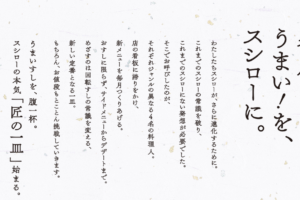 うまい！を、
スシローに。
わたしたちスシローが、さらに進化するために。
これまでのスシローの常識を破り、
これまでのスシローにない発想が必要でした。
そこでお呼びしたのが、
それぞれジャンルの異なる4名の料理人。
店の看板に誇りをかけ、
新メニューを毎月つくりあげる。
おすしに限らず、サイドメニューからデザートまで。
めざすのは回転すしの常識を変える、
新しい定番となる一皿。
もちろん、お値段もとことん挑戦していきます。
うまいすしを、腹一杯。
スシローの本気「匠の一皿」始まる。